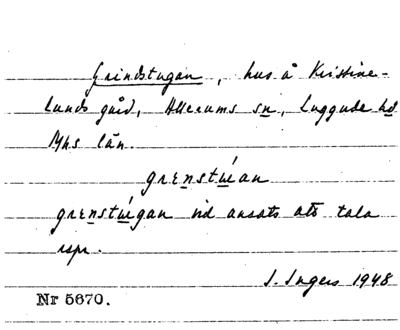 Grindstugan, hus å Kristine-
lunds gård, Allerums sn, Luggude hd
Mhs län.
grenstúan
grenstúgan vid ansats att tala
rspr.
I. Ingers 1948
Nr 5670.